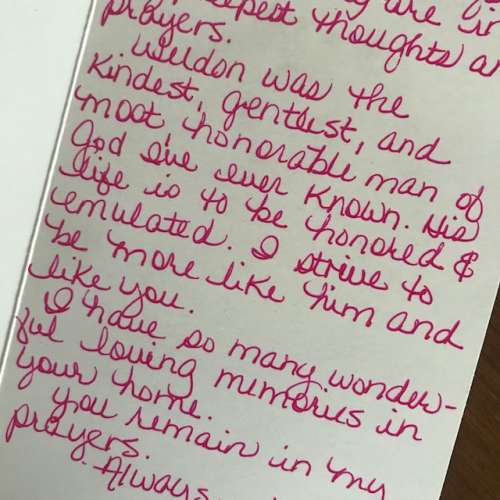 deepest thoughts a
prayers.
Weldon was the
kindest, gentlest, and
most honorable man of
God I've ever known. His
life is to be honored &
emulated. I strive to
be more like him and
like you.
I have so many wonder-
ful loving memories in
your home.
You remain in my
prayers.
Always